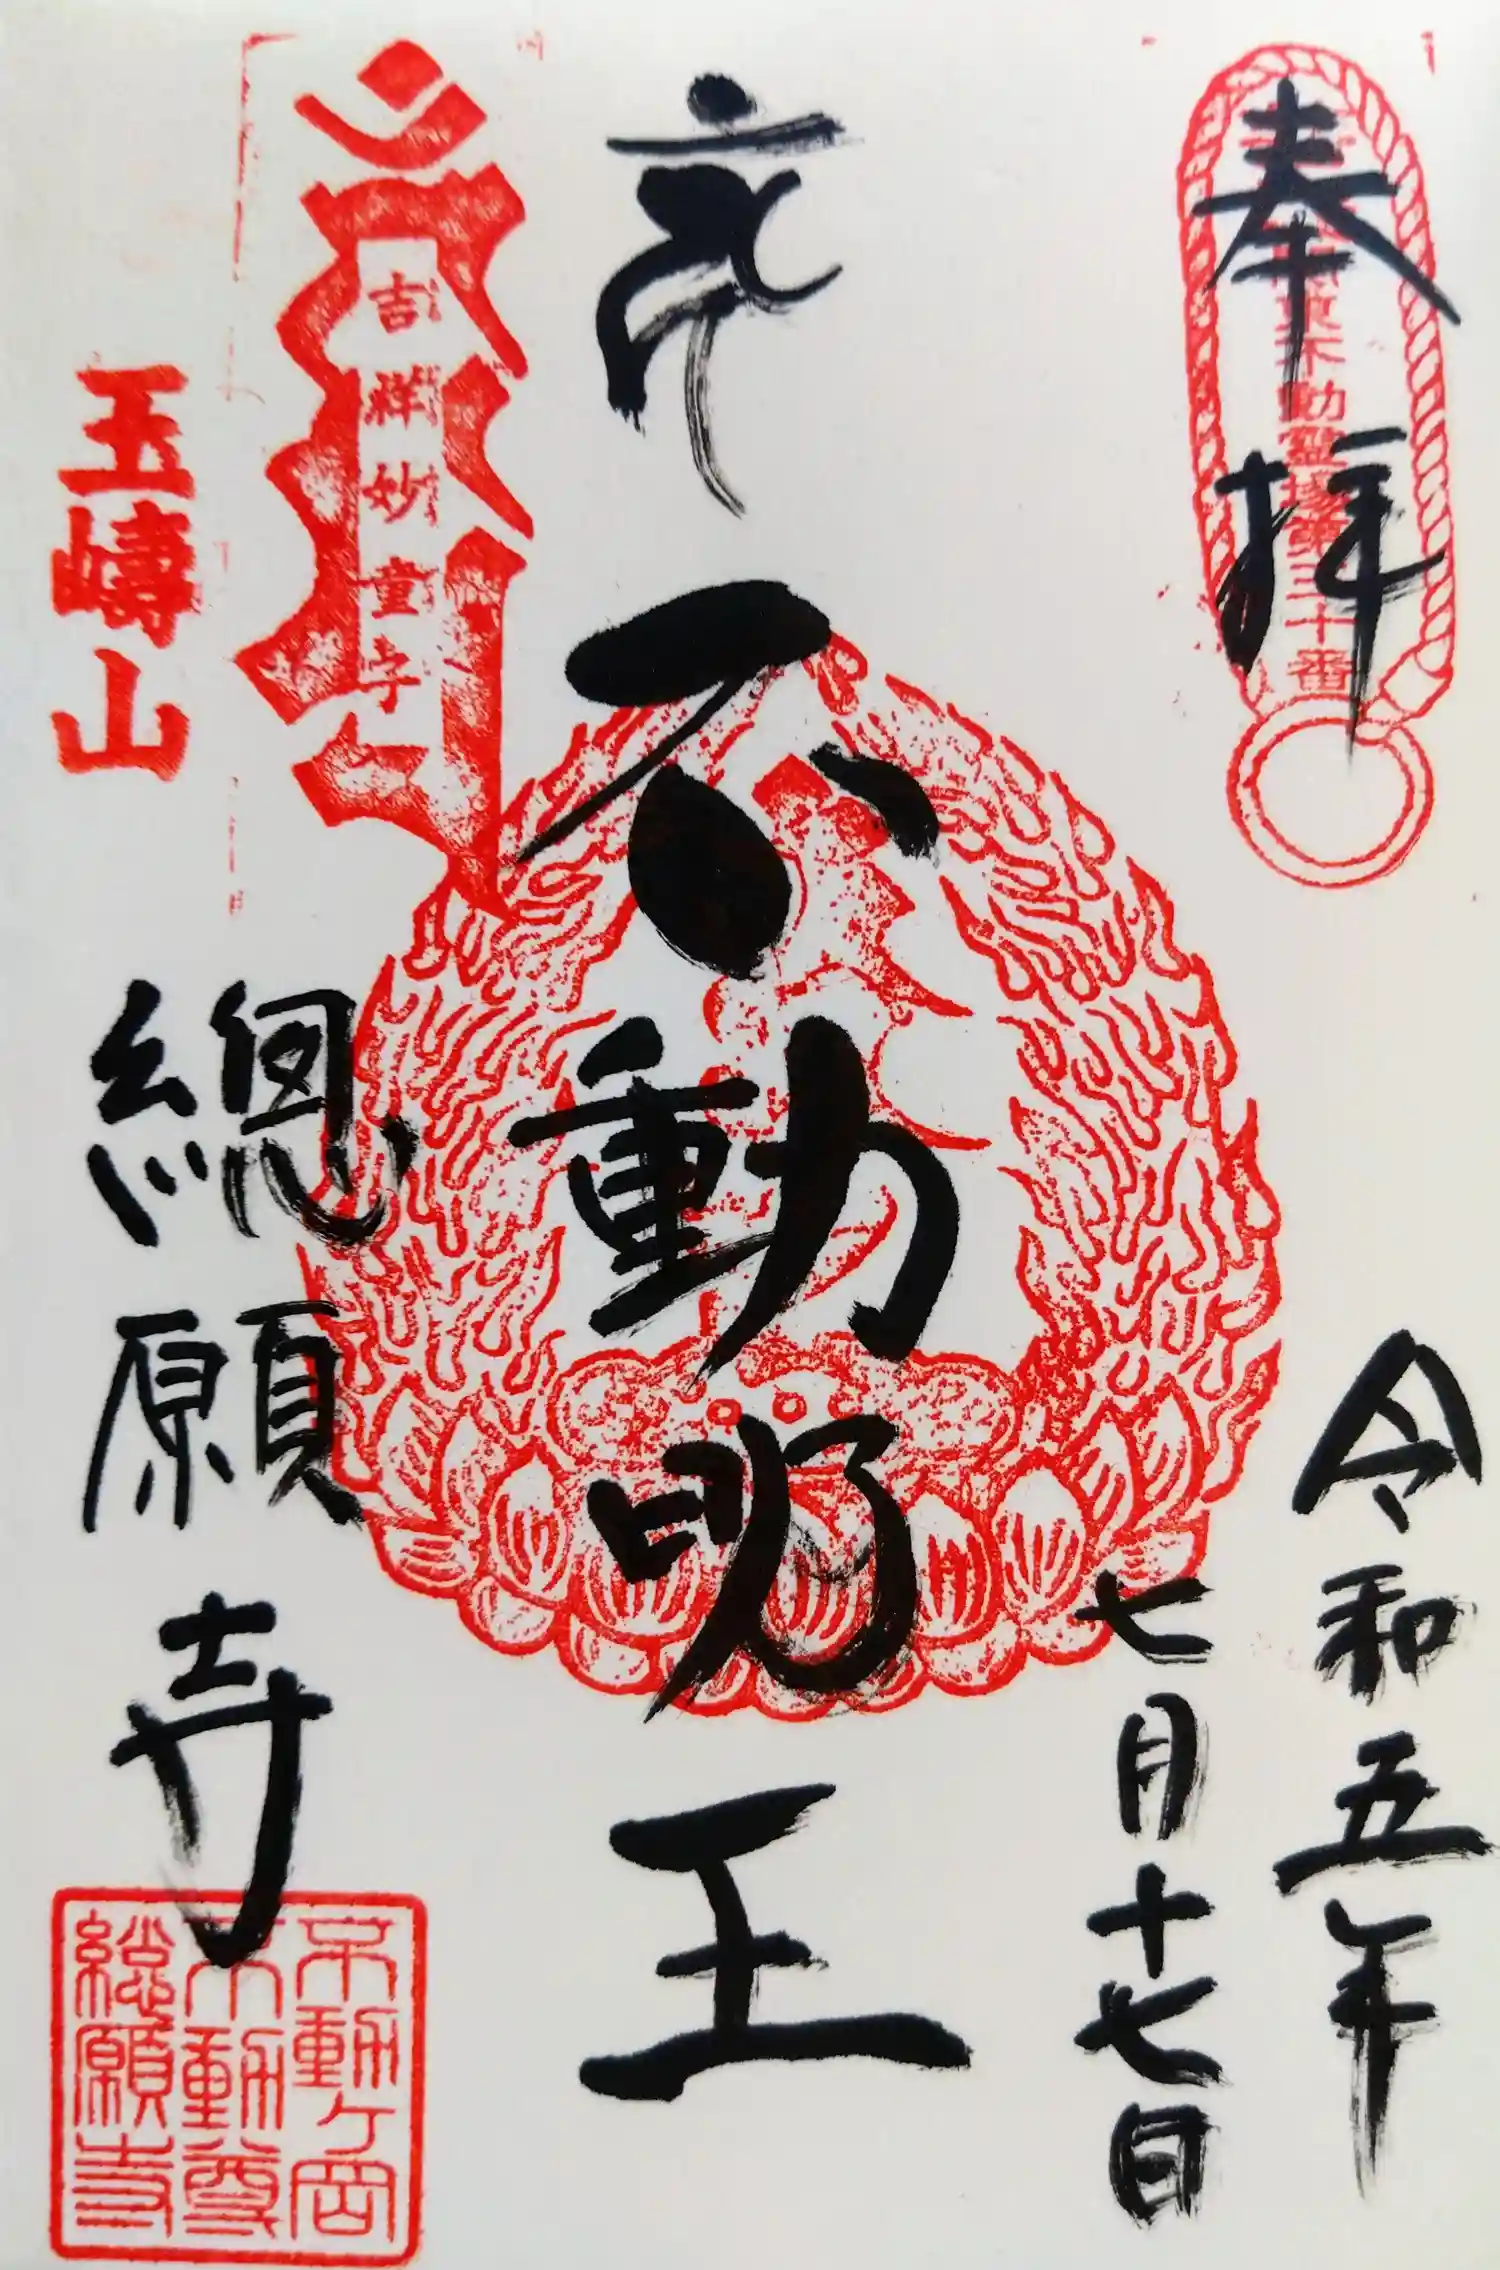 奉拝
東不動霊場第三十番
令和五年
七月十七日
不動明王
吉祥妙童子
玉嶹山
總願寺
不動ヶ岡
不動尊
總願寺